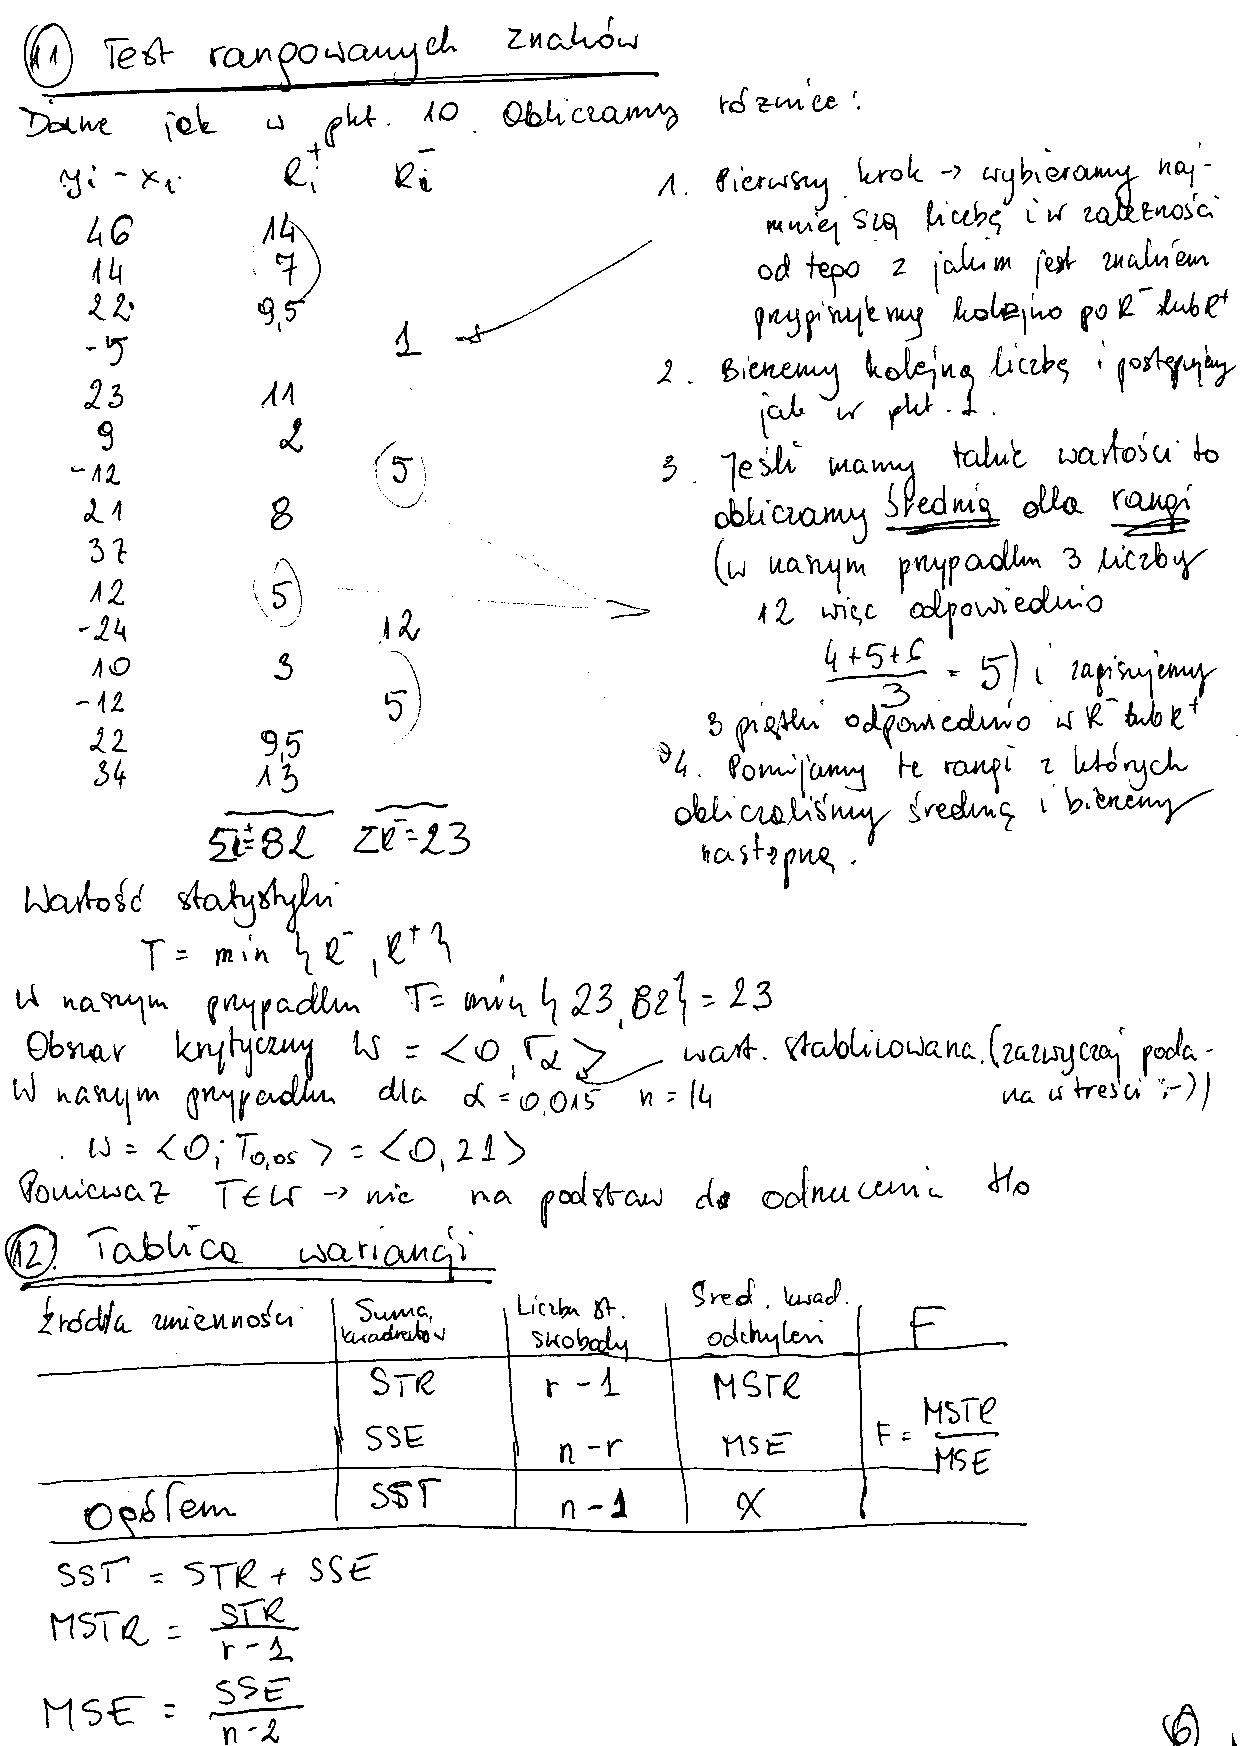 11 Test rangowanych znaków
Dane jak w pkt. 10. Obliczamy różnice:
yi - xi Ri+ Ri-
46 14
14 7
22 9,5
-5 1
23 11
9 2
-12 5
21 8
37
12 5
-24 12
10 3
-12 5
22 9,5
34 13
ΣR+=82 ΣR-=23
1. Pierwszy krok -> wybieramy naj-
mniejszą liczbę i w zależności
od tego z jakim jest znakiem
przypisujemy kolejno po R- lub R+
2. Bierzemy kolejną liczbę i postępujemy
jak w pkt. 1.
3. Jeśli mamy takie wartości to
obliczamy średnią dla rangi
(w naszym przypadku 3 liczby
12 więc odpowiednio
4+5+6/3 = 5) i zapisujemy
3 piątki odpowiednio w R- lub R+
4. Pomijamy te rangi z których
obliczaliśmy średnią i bierzemy
następną.
Wartość statystyki
T = min {R-, R+}
W naszym przypadku T= min {23,82} = 23
Obszar krytyczny W = <0, Tα> wart. stablicowana. (zazwyczaj poda-
na w treści :-))
W naszym przypadku dla α = 0,015 n = 14
W = <0; T0,05 > = <0, 21>
Ponieważ T∈W -> nie ma podstaw do odrzucenia Ho
12. Tablica wariancji
Źródła zmienności Suma kwadratów Liczba st. swobody Śred. kwad. odchyleń F
STR r-1 MSTR
SSE n-r MSE F = MSTR/MSE
Ogółem SST n-1 X
SST = STR + SSE
MSTR = STR/r-1
MSE = SSE/n-2
6